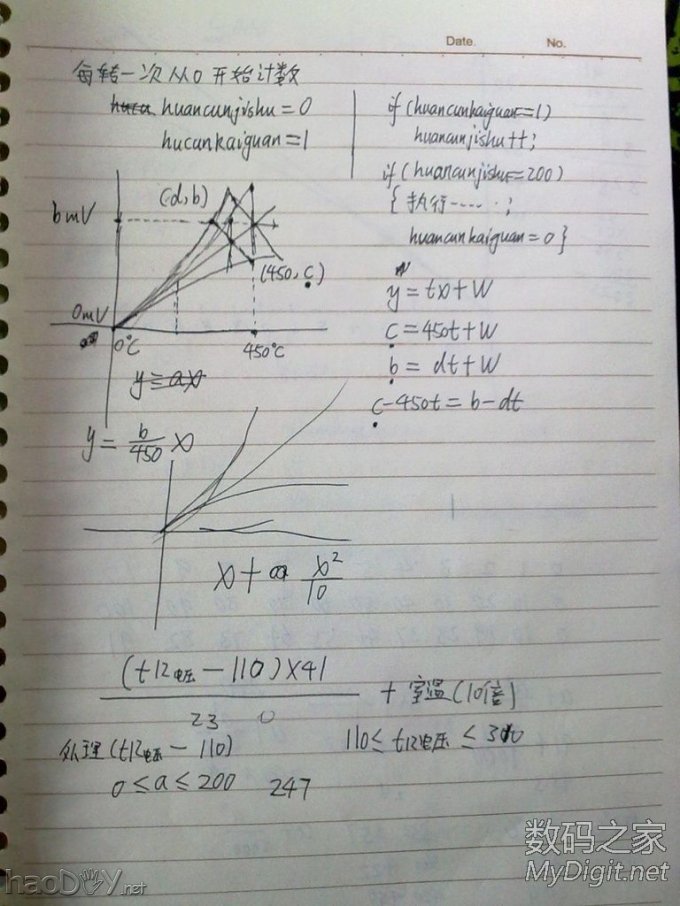 Date.
No.
每转一次从0开始计数
huancunjishu = 0
hucunkaiguan = 1
if (huancunkaiguan = 1)
huancunjishu++;
if (huancunjishu = 200)
{ 执行-----;
huancunkaiguan = 0 }
(d, b)
bmV
(450, c)
0mV
0℃
450℃
y = ax
y = b/450 x
y = tx + w
c = 450t + w
b = dt + w
c - 450t = b - dt
x + a x²/10
(t12电压 - 110) X 41
23 0
+ 室温(10倍)
处理(t12电压 - 110)
110 ≤ t12电压 ≤ 310
0 ≤ a ≤ 200
247
数码之家
MyDigit.net
haoDIY.net